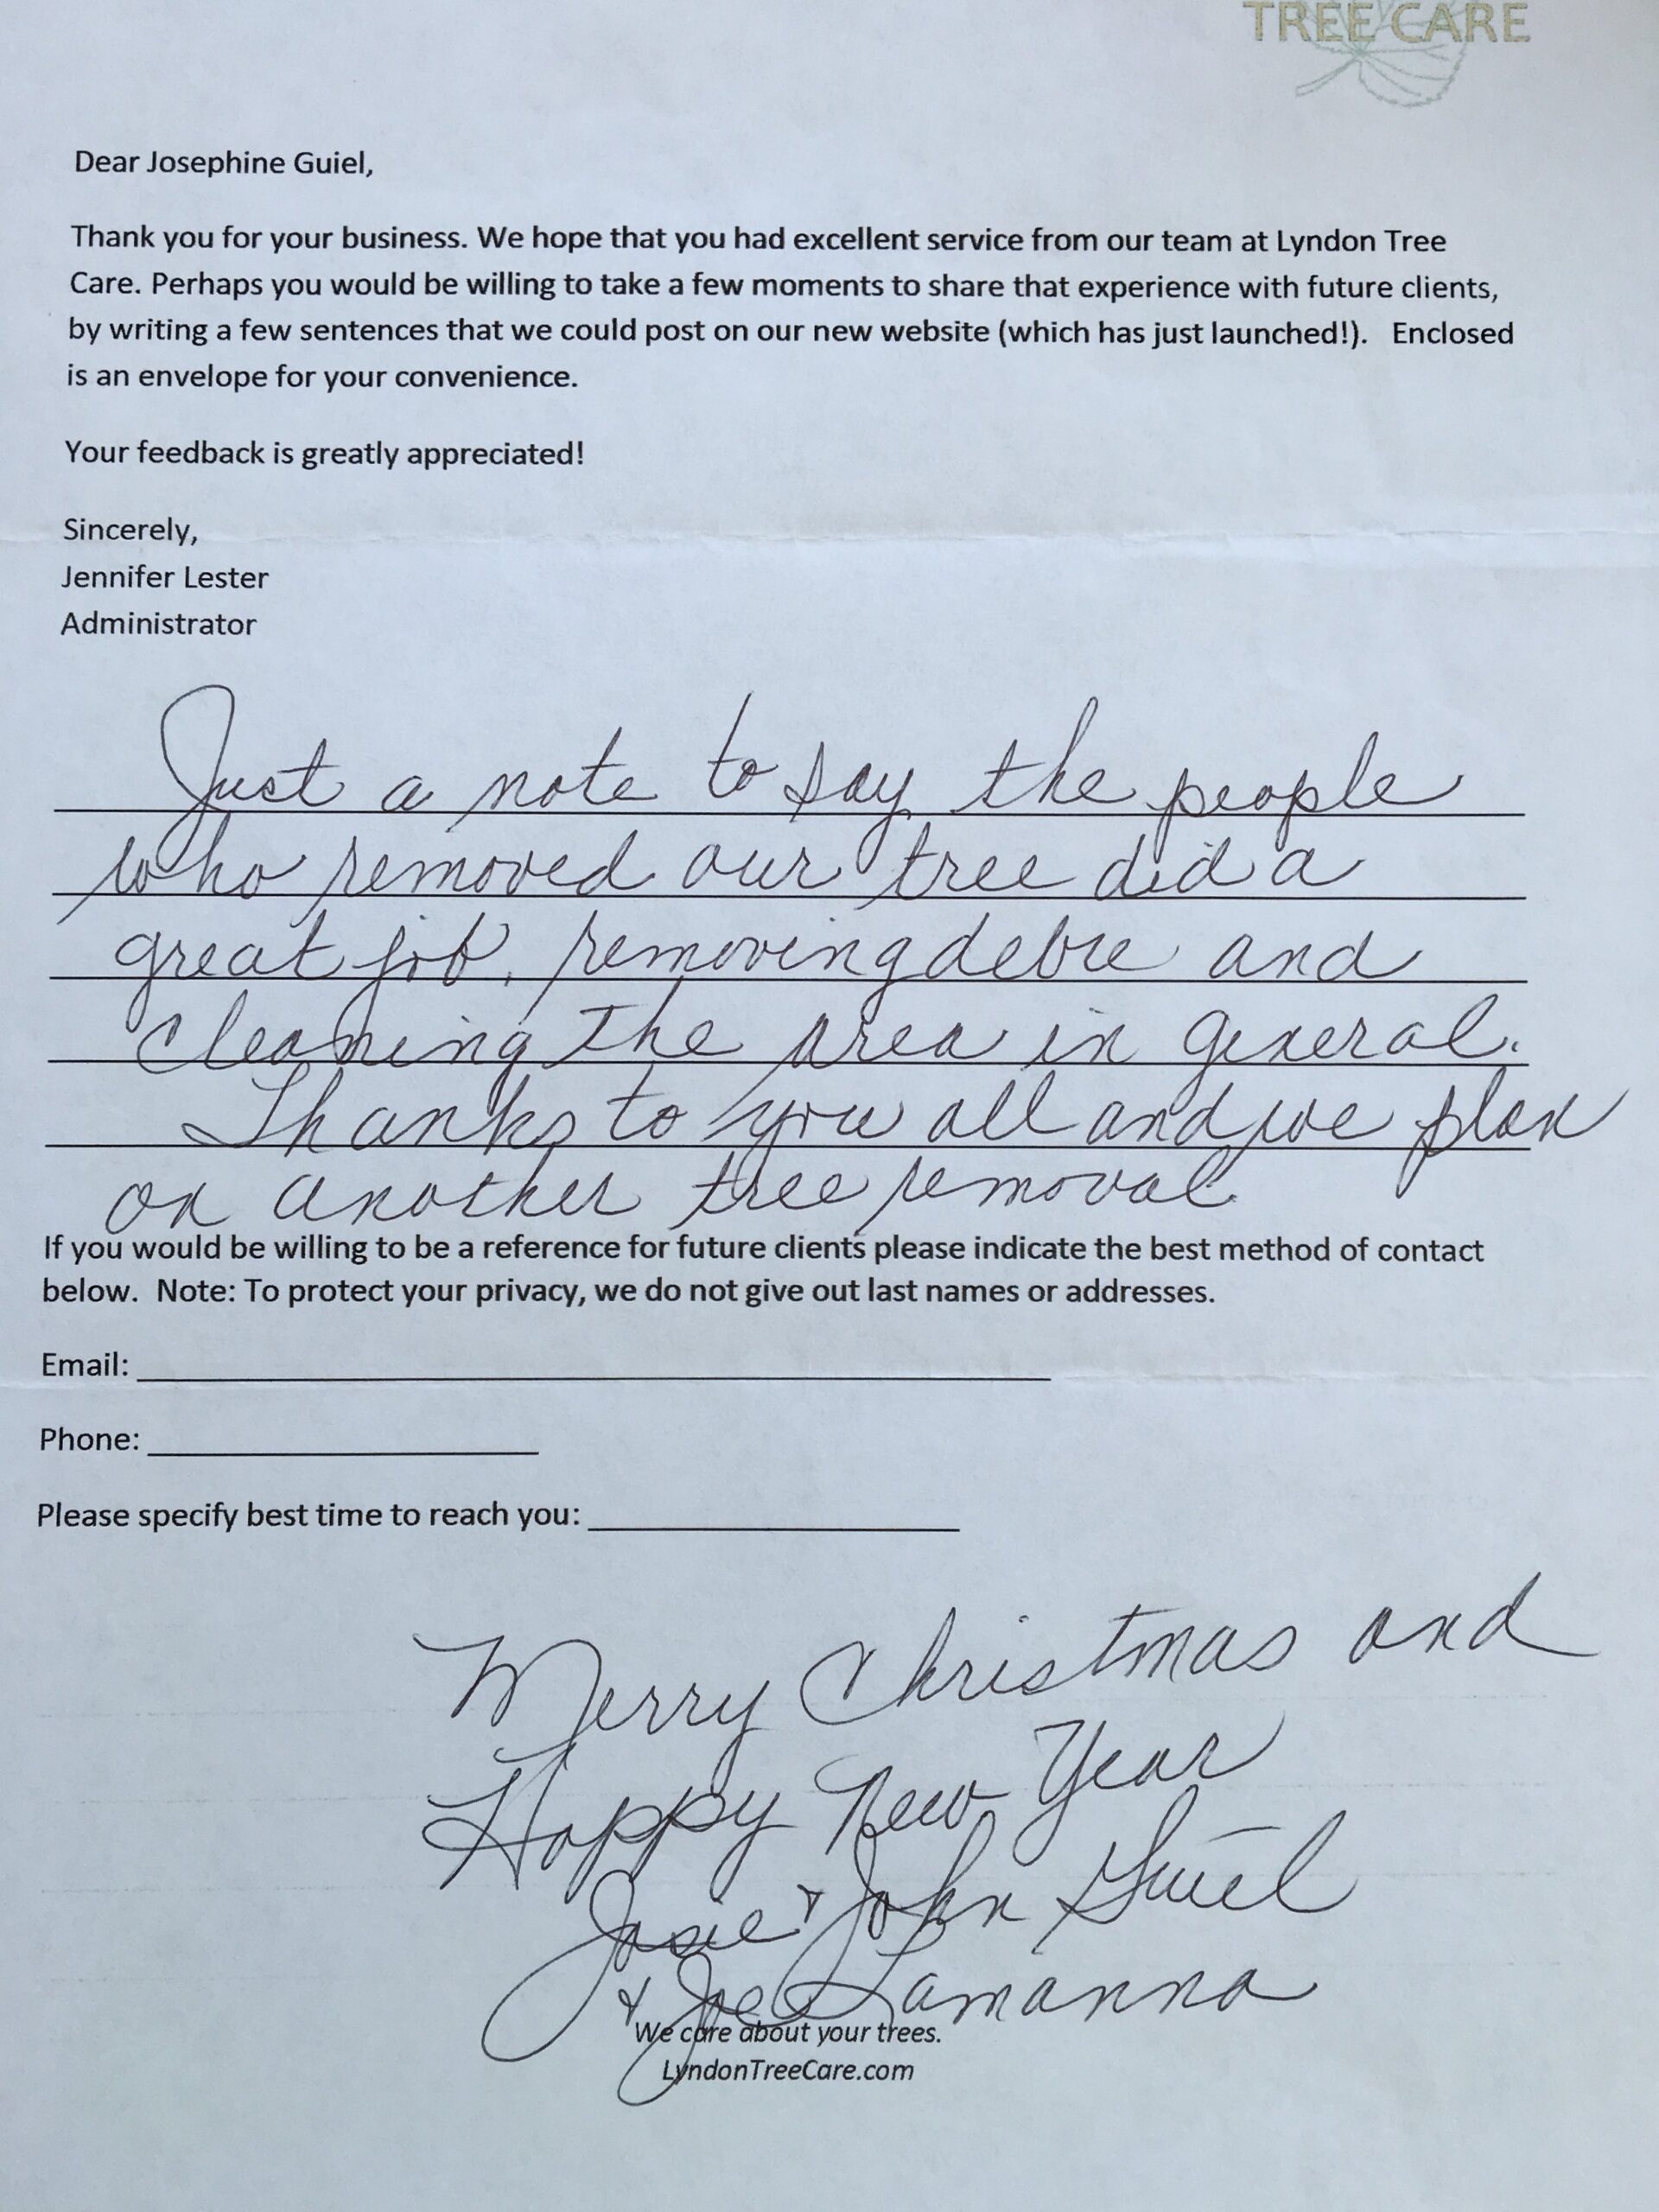 TREE CARE
Dear Josephine Guiel,
Thank you for your business. We hope that you had excellent service from our team at Lyndon Tree
Care. Perhaps you would be willing to take a few moments to share that experience with future clients,
by writing a few sentences that we could post on our new website (which has just launched!).   Enclosed
is an envelope for your convenience.
Your feedback is greatly appreciated!
Sincerely,
Jennifer Lester
Administrator
Just a note to say the people
who removed our tree did a
great job, removing debre and
cleaning the area in general.
Thanks to you all and we plan
on another tree removal.
If you would be willing to be a reference for future clients please indicate the best method of contact
below.  Note: To protect your privacy, we do not give out last names or addresses.
Email:
Phone:
Please specify best time to reach you:
Merry Christmas and
Happy New Year
Josie & John Guiel
& Joe Lamanna
We care about your trees.
LyndonTreeCare.com